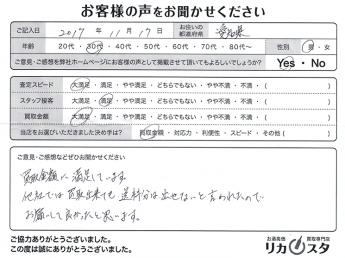 お客様の声をお聞かせください
ご記入日 2017年 11月 17日 お住いの都道府県
年齢 20代・30代・40代・50代・60代・70代・80代〜 性別 男・女
ご意見・ご感想を弊社ホームページにお客様の声として掲載させて頂いてもよろしいでしょうか? Yes・No
査定スピード 大満足・満足・やや満足・どちらでもない・やや不満・不満・( )
スタッフ接客 大満足・満足・やや満足・どちらでもない・やや不満・不満・( )
買取金額 大満足・満足・やや満足・どちらでもない・やや不満・不満・( )
当店をお選びいただきました決め手は? 買取金額・対応力・利便性・スピード・その他( )
ご意見・ご感想などぜひお聞かせください
買取金額に満足しています。
他社では買取出来ても送料分は出せないと言われたので
お願いして良かったと思います。
ご協力ありがとうございました。
この度は誠にありがとうございました。
お酒高価買取専門店
リカスタ